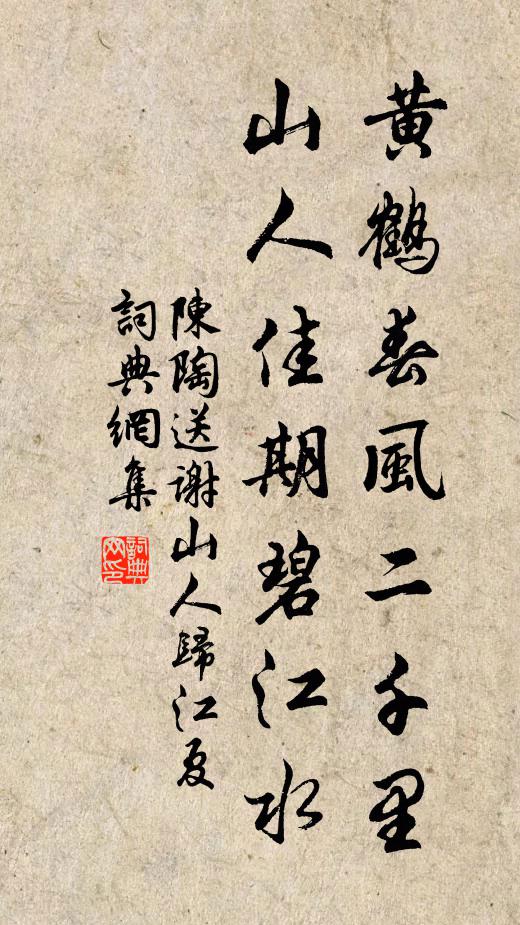 黄鶴春風二千里
山人佳期碧江水
陳陶送謝山人歸江夏
詞典網集
詞典
网印